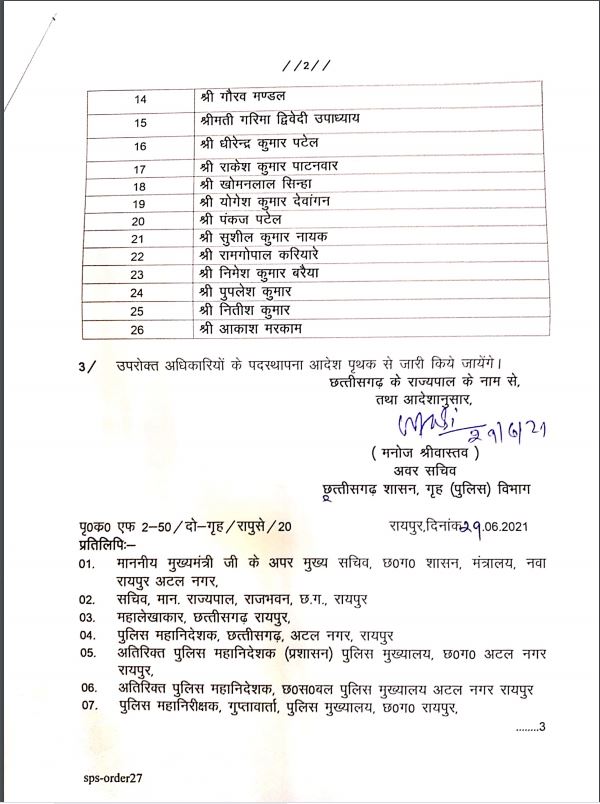 //2//
14 श्री गौरव मण्डल
15 श्रीमती गरिमा द्विवेदी उपाध्याय
16 श्री धीरेन्द्र कुमार पटेल
17 श्री राकेश कुमार पाटनवार
18 श्री खोमनलाल सिन्हा
19 श्री योगेश कुमार देवांगन
20 श्री पंकज पटेल
21 श्री सुशील कुमार नायक
22 श्री रामगोपाल करियारे
23 श्री निमेश कुमार बरैया
24 श्री पुपलेश कुमार
25 श्री नितीश कुमार
26 श्री आकाश मरकाम
3/ उपरोक्त अधिकारियों के पदस्थापना आदेश पृथक से जारी किये जायेंगे।
छत्तीसगढ़ के राज्यपाल के नाम से,
तथा आदेशानुसार,
29/6/21
( मनोज श्रीवास्तव )
अवर सचिव
छत्तीसगढ़ शासन, गृह (पुलिस) विभाग
पृ0क0 एफ 2-50/दो-गृह/रापुसे/20 रायपुर,दिनांक 29.06.2021
प्रतिलिपिः–
01. माननीय मुख्यमंत्री जी के अपर मुख्य सचिव, छ0ग0 शासन, मंत्रालय, नवा
रायपुर अटल नगर,
02. सचिव, मान. राज्यपाल, राजभवन, छ.ग., रायपुर
03. महालेखाकार, छत्तीसगढ़ रायपुर,
04. पुलिस महानिदेशक, छत्तीसगढ़, अटल नगर, रायपुर
05. अतिरिक्त पुलिस महानिदेशक (प्रशासन) पुलिस मुख्यालय, छ0ग0 अटल नगर
रायपुर,
06. अतिरिक्त पुलिस महानिदेशक, छ0स0बल पुलिस मुख्यालय अटल नगर रायपुर
07. पुलिस महानिरीक्षक, गुप्तावार्ता, पुलिस मुख्यालय, छ0ग0 रायपुर,
........3
sps-order27